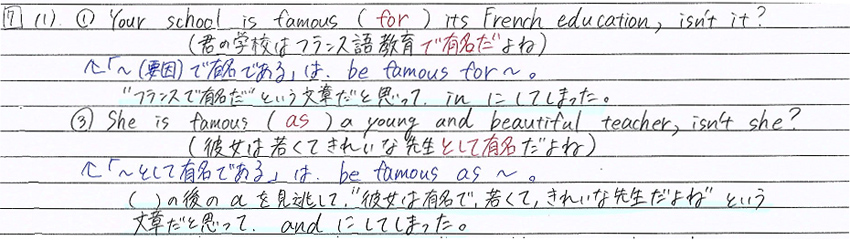 7 (1). ① Your school is famous ( for ) its French education, isn't it?
(君の学校はフランス語教育で有名だよね)
↑「～(要因)で有名である」は、be famous for ～。
"フランスで有名だ"という文章だと思って、in にしてしまった。
③ She is famous ( as ) a young and beautiful teacher, isn't she?
(彼女は若くてきれいな先生として有名だよね)
↑「～として有名である」は、be famous as ～。
( )の後の a を見逃して、"彼女は有名で、若くて、きれいな先生だよね"という
文章だと思って、and にしてしまった。